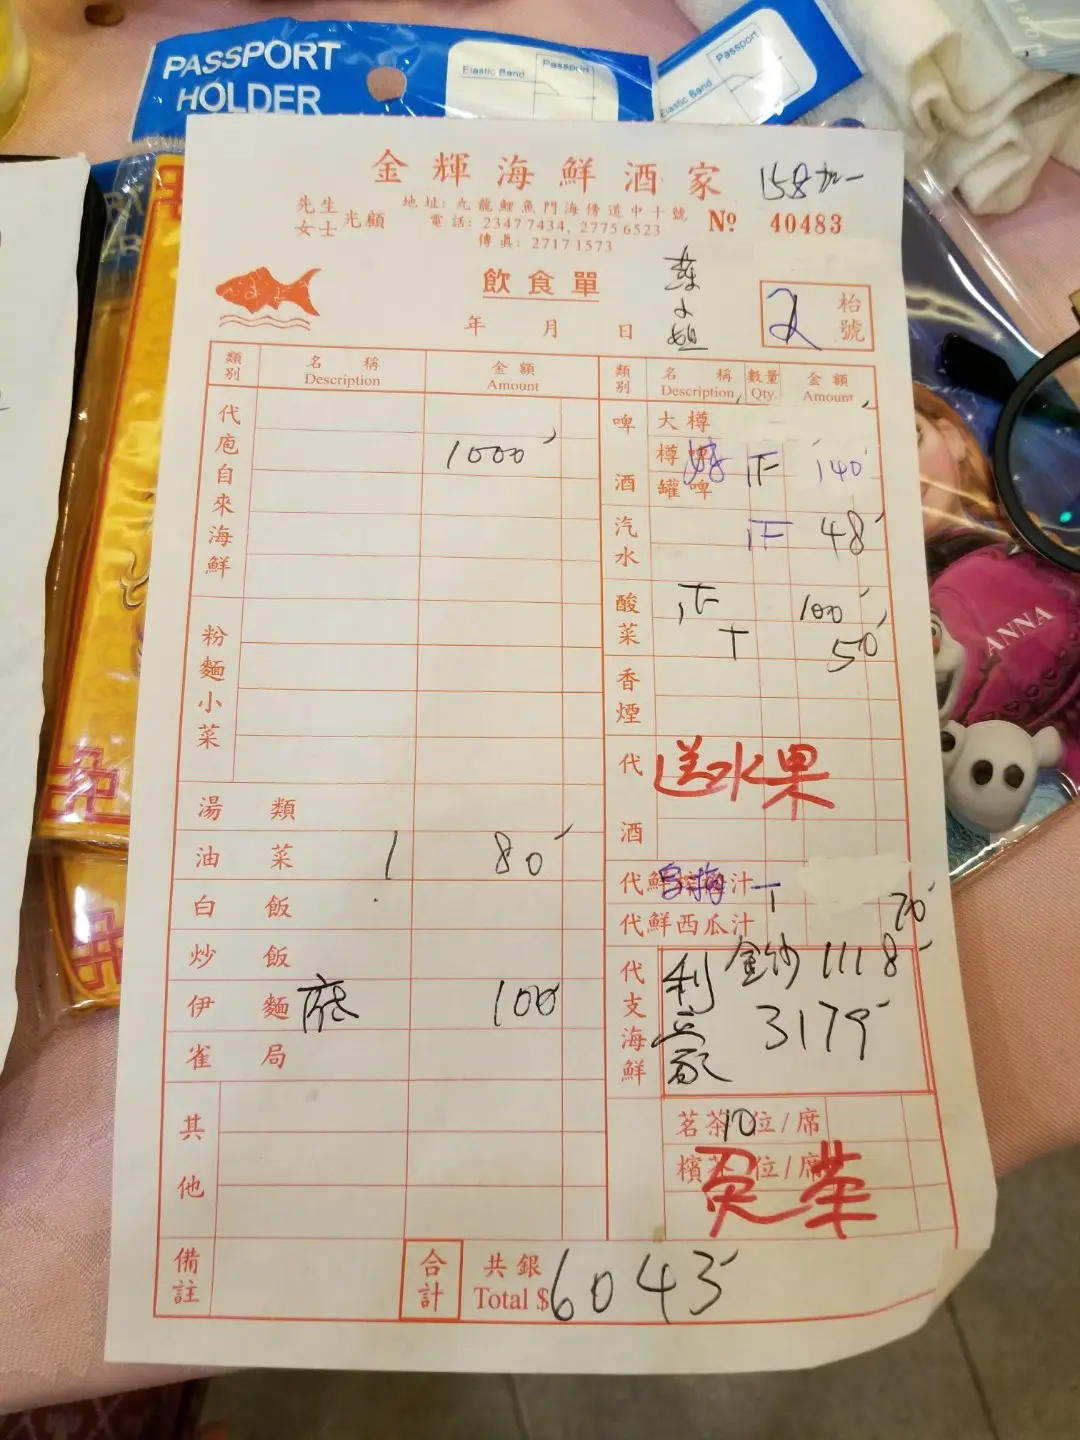 PASSPORT
HOLDER
Elastic Band
Passport
Elastic Band
Passport
金輝海鮮酒家
158加一
先生
女士
光顧
地址：九龍鯉魚門海傍道中十號
電話：23477434, 27756523
傳真：27171573
Nº 40483
飲食單
小姐
年 月 日
2
枱號
類別
名稱 Description
金額 Amount
代庖自來海鮮
1000
粉麵小菜
湯類
油菜 1 80
白飯
炒飯
伊麵 底 100
雀局
其他
備註
類別
名稱 Description
數量 Qty.
金額 Amount
啤酒
大樽
樽啤
罐啤
正 140
汽水
正 48
酸菜
正 100
T 50
香煙
代酒
送水果
代鮮 汁 T
代鮮西瓜汁
代支海鮮
金沙 1118
3179
茗茶 10 位/席
檳 位/席
免茶
合計
共銀
Total $ 6043
ANNA